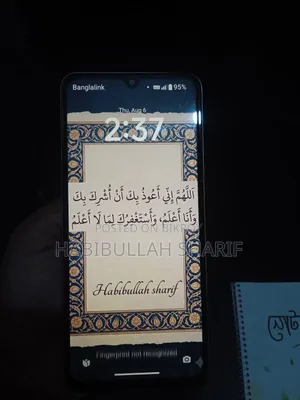 Banglalink
95%
Thu, Aug 6
2:37
اَللَّهُمَّ إِنِّي أَعُوذُ بِكَ أَنْ أُشْرِكَ بِكَ
وَأَنَا أَعْلَمُ، وَأَسْتَغْفِرُكَ لِمَا لَا أَعْلَمُ
POSTED ON BIKR
HABIBULLAH SHARIF
Habibullah sharif
Fingerprint not recognized